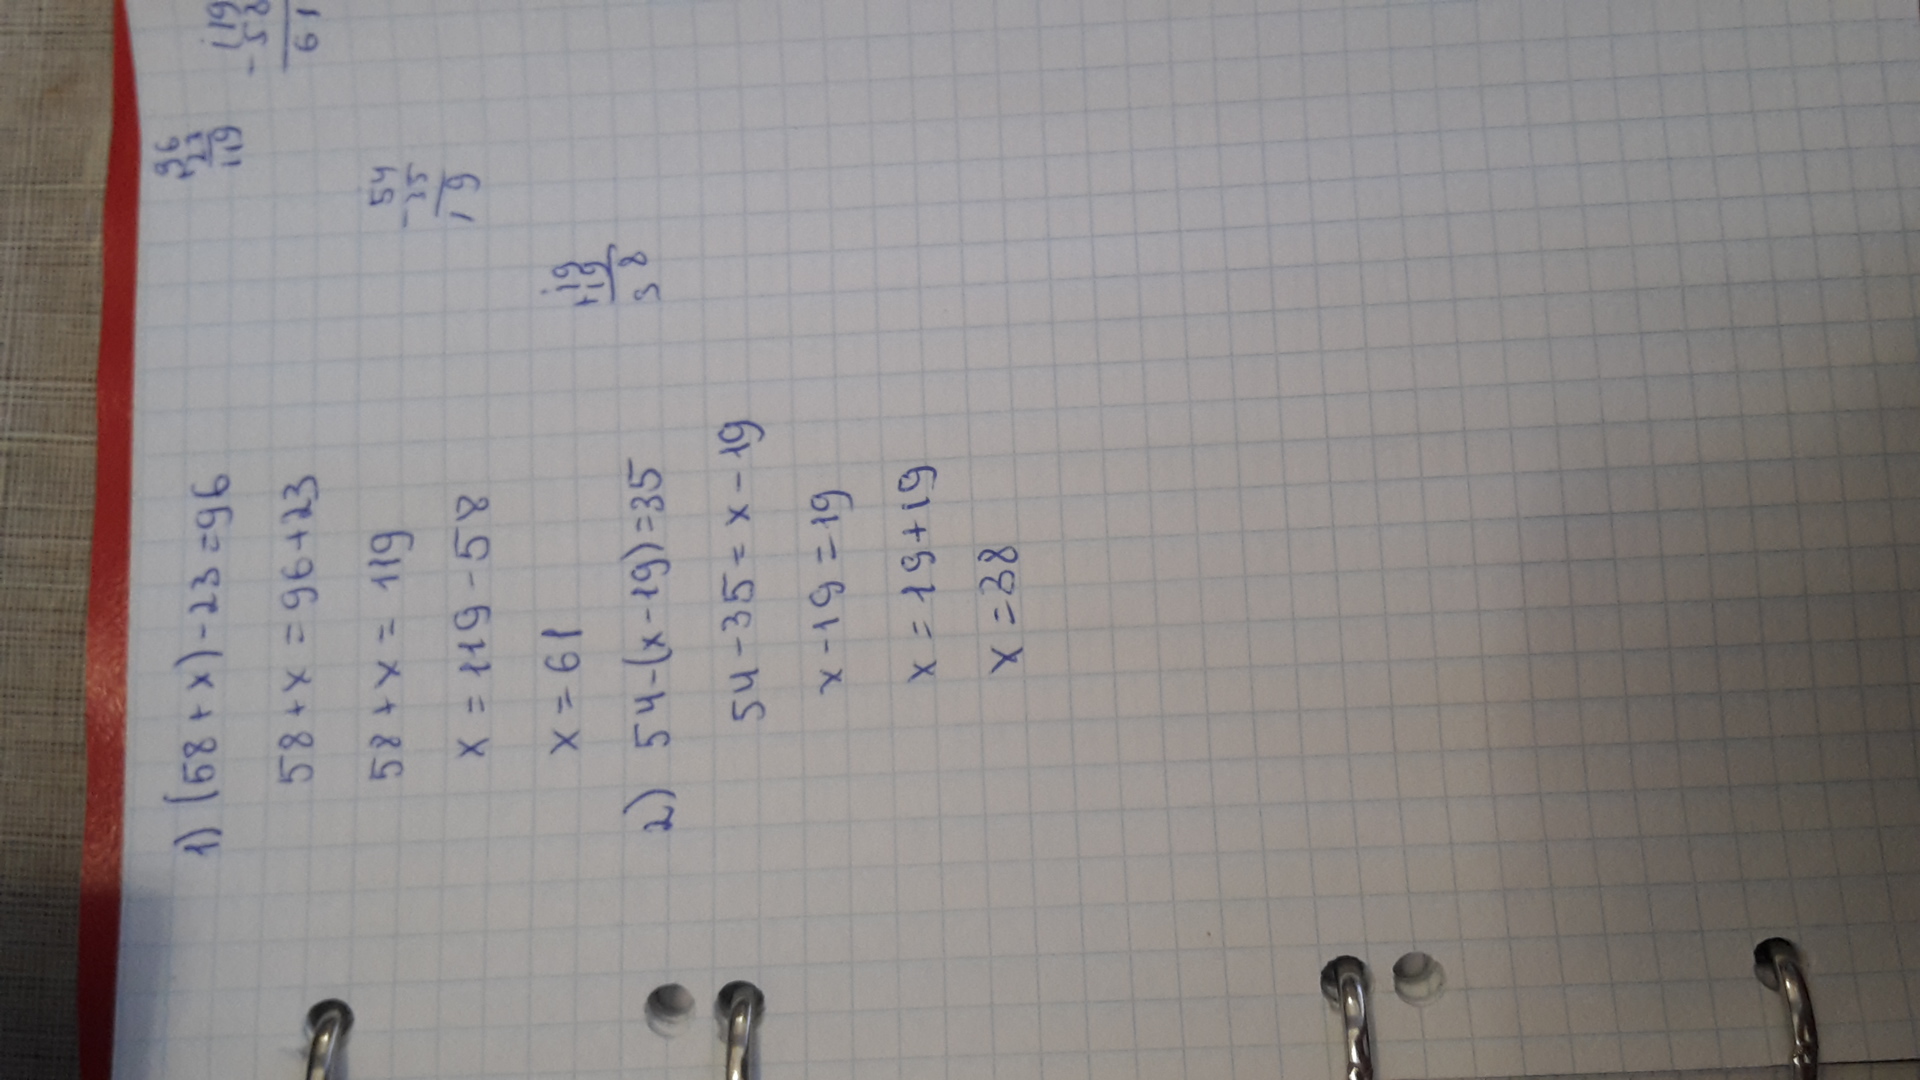 1) (58 + x) - 23 = 96
58 + x = 96 + 23
58 + x = 119
x = 119 - 58
x = 61
2) 54 - (x - 19) = 35
54 - 35 = x - 19
x - 19 = 19
x = 19 + 19
x = 38
96
+23
119
119
-58
61
54
-35
19
19
+19
38